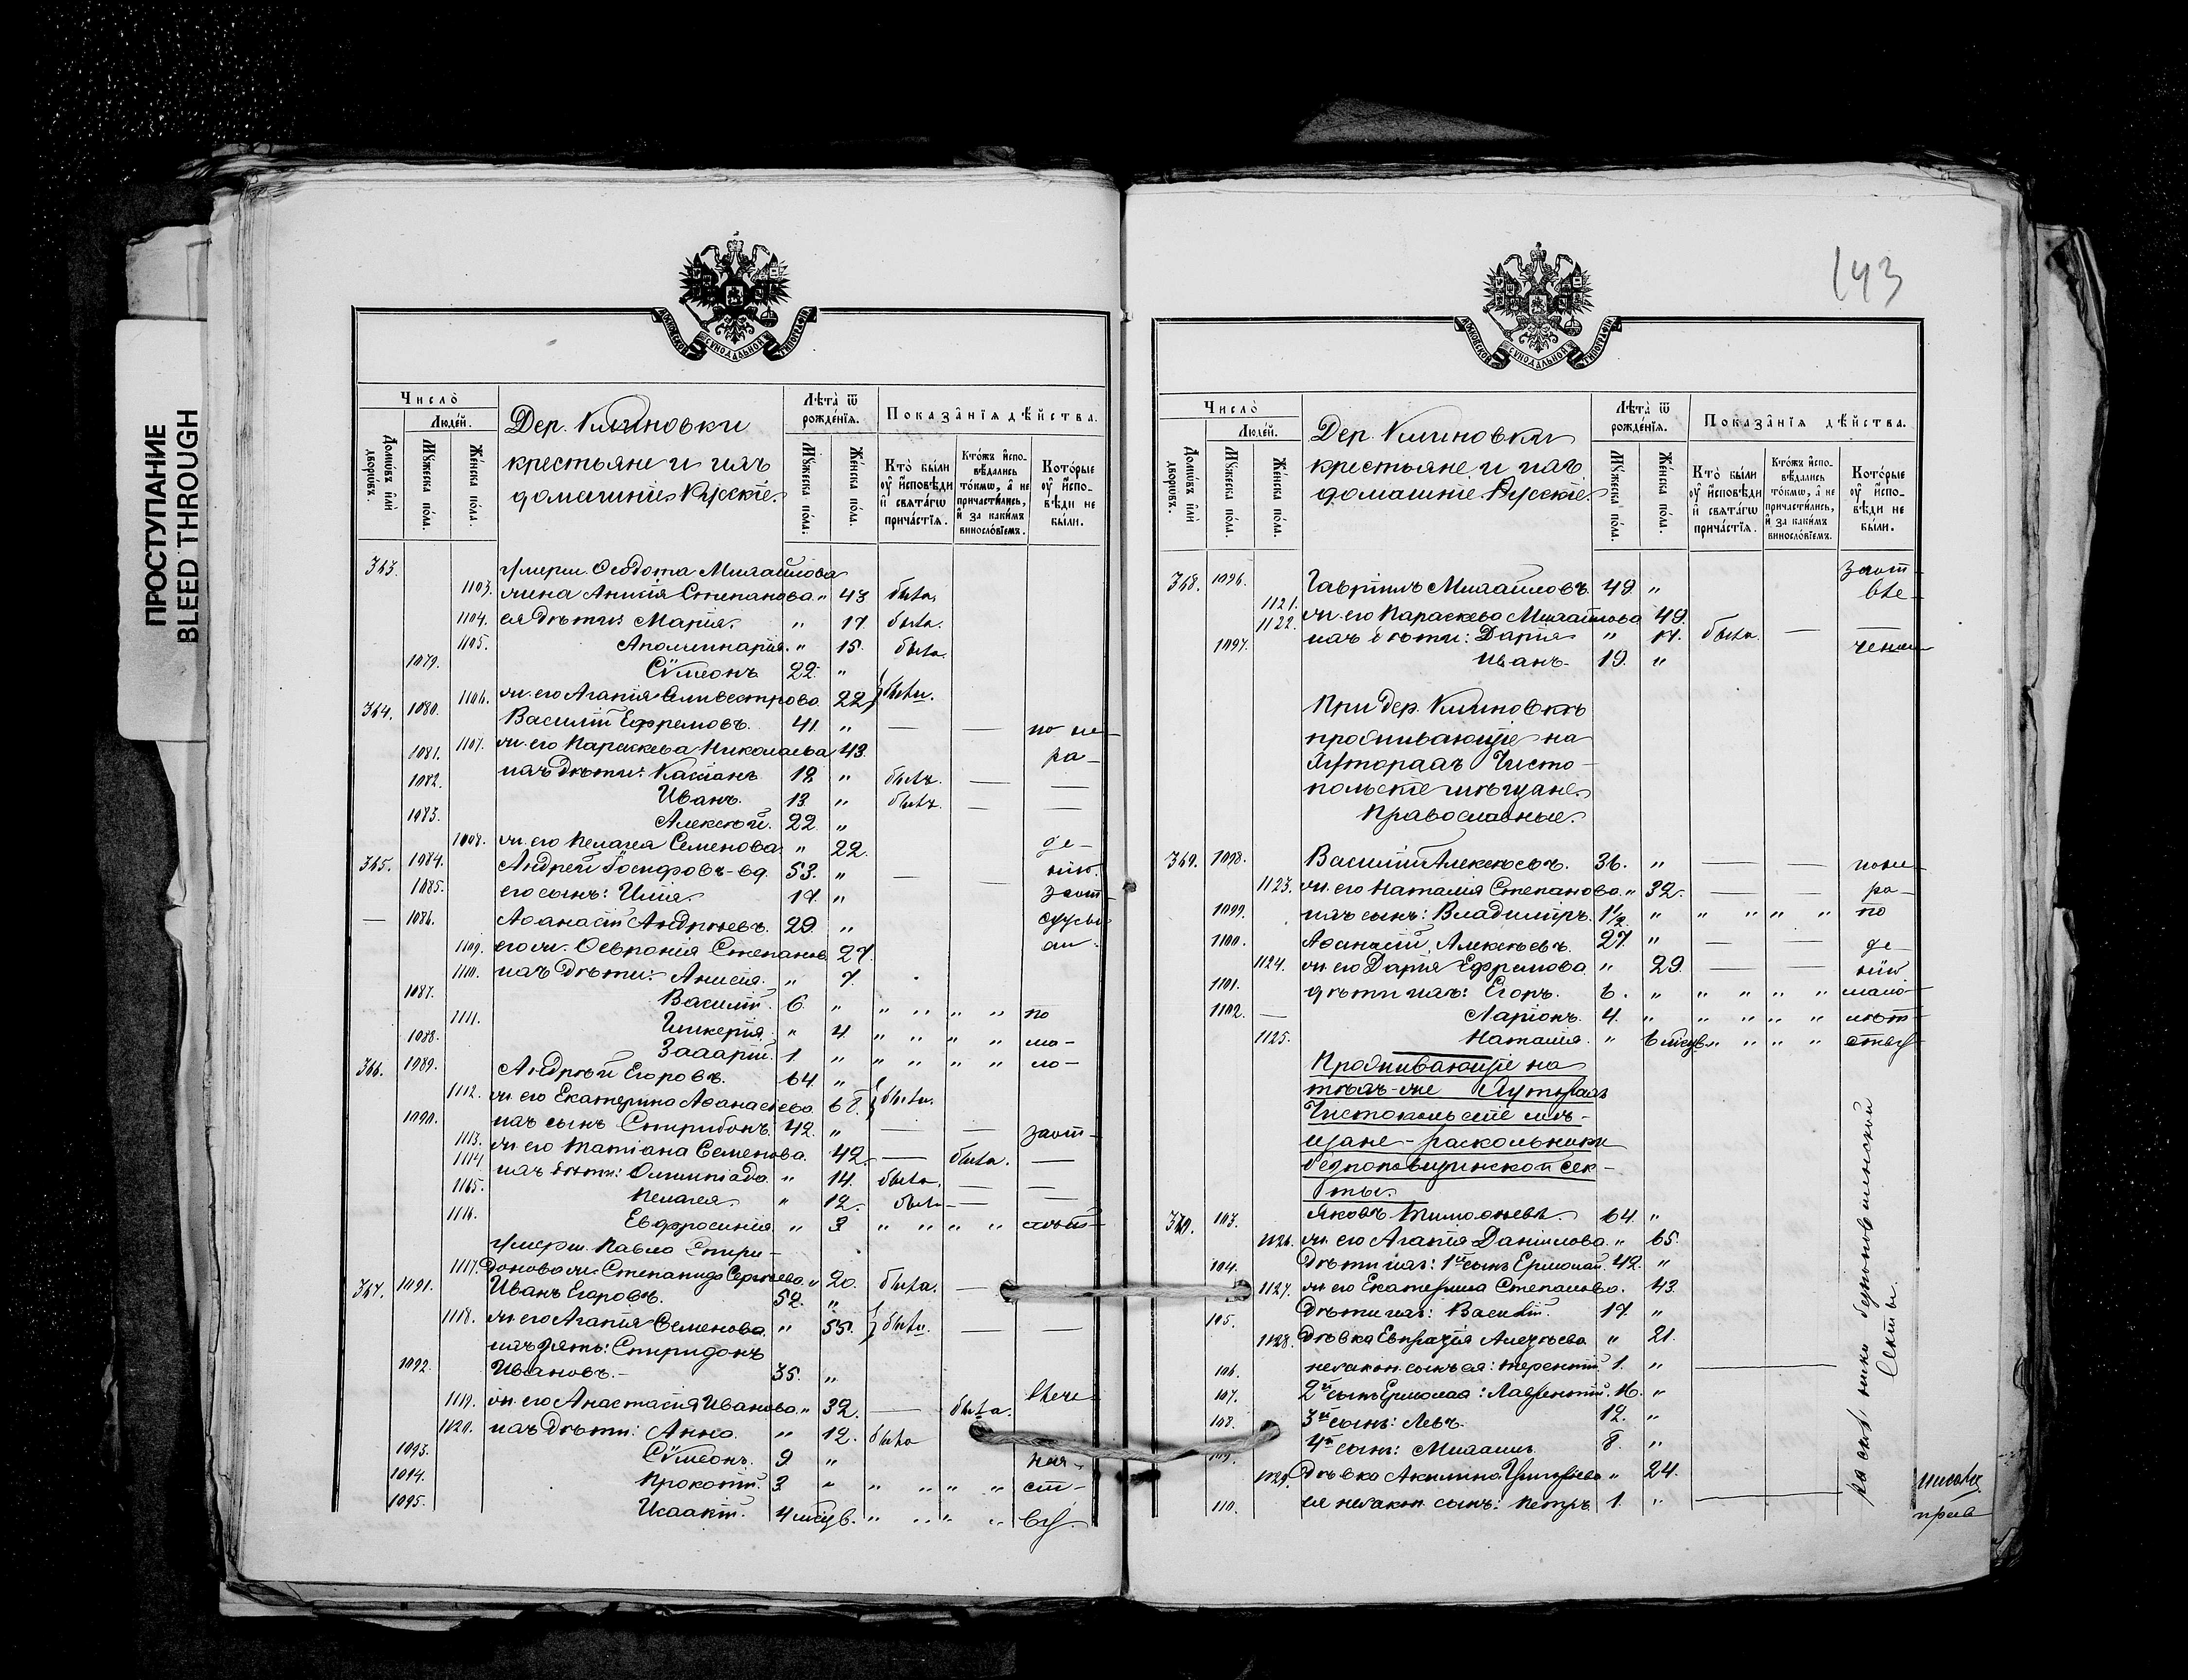 ПРОСТУПАНИЕ
BLEED THROUGH
МОСКОВСКОЙ СѴНОДАЛЬНОЙ ТИПОГРАФІИ
Число̀
Люде́й.
Домѡ́въ и҆лѝ дворѡ́въ.
Мꙋ́жеска по́ла.
Же́нска по́ла.
Дер. Клиновки
крестьяне и ихъ
домашніе Русскіе.
Лѣта̀ ѿ рожде́нїѧ.
Мꙋ́жеска по́ла.
Же́нска по́ла.
Показа̑нїѧ дѣ́йства.
Кто̀ бы́ли оу҆ и҆сповѣди и҆ свѧта́гѡ прича́стїѧ.
Кто́жъ и҆спо-
вѣ́дались
то́кмѡ, а҆ не
причасти́лись,
и҆ за каки́мъ
винosло́вїемъ.
Кото́рые
оу҆ и҆спо-
вѣди не
бы́ли.
363. умерш. Ѳеодота Михайлова
1103. жена Анисія Степанова. " 43 была.
1104. ея дѣти: Марія. " 17. была.
1105. Аполлинарія. " 15. была.
1079. Сѷмеонъ 22. "
1106. ж. его Агапія Сильвестрова 22. } были.
364. 1080. Василій Ефремовъ. 41. " — — по не-
1107. ж. его Параскева Николаева 43. ра-
1081. ихъ дѣти: Кассіанъ 18 " былъ. — —
1082. Иванъ. 13. " былъ. — —
1083. Алексѣй. 22. "
1108. ж. его Пелагея Семенова. " 22. де-
365. 1084. Андрей Іосифовъ - вд. 53. " — — нію.
1085. его сынъ: Илія. 17. " заот-
— 1086. Аѳанасій Андреевъ. 29. " сутсв
1109. его ж. Ѳевронія Степанов. 27.
1110. ихъ дѣти: Анисія. " 7.
1087. Василій. 6. " " " " " по
1111. Гликерія. " 4. " " " " ма-
1088. Захарій. 1. " " " " " ло-
366. 1089. Андрей Егоровъ. 64. "
1112. ж. его Екатерина Аѳанасіева. 68. } были.
1090. ихъ сынъ Спиридонъ. 42. " — — заот-
1113. ж. его Татіана Семенова. 42. — была. —
1114. ихъ дѣти: Олимпіада. " 14. была. — —
1115. Пелагея. " 12. была — —
1116. Евфросинія. " 3 " " " " лѣт-
умерш. Павла Спири-
1117. донова ж. Степанида Сергѣева. " 20. была. —
367. 1091. Иванъ Егоровъ. 52. "
1118. ж. его Агапія Семенова. " 55. } были. — —
ихъ зять: Спиридонъ
1092. Ивановъ. — 35. "
1119. ж. его Анастасія Иванова. " 32. — была.
1120. ихъ дѣти: Анна. " 12. была
1093. Сѷмеонъ. 9 "
1094. Прокопій. 3. " " " " " ст-
1095. Исаакій. 4 мѣсяцв. " " " " ву.
143
МОСКОВСКОЙ СѴНОДАЛЬНОЙ ТИПОГРАФІИ
Число̀
Люде́й.
Домѡ́въ и҆лѝ дворѡ́въ.
Мꙋ́жеска по́ла.
Же́нска по́ла.
Дер. Клиновки
крестьяне и ихъ
домашніе Русскіе.
Лѣта̀ ѿ рожде́нїѧ.
Мꙋ́жеска по́ла.
Же́нска по́ла.
Показа̑нїѧ дѣ́йства.
Кто̀ бы́ли оу҆ и҆сповѣди и҆ свѧта́гѡ прича́стїѧ.
Кто́жъ и҆спо-
вѣ́дались
то́кмѡ, а҆ не
причасти́лись,
и҆ за каки́мъ
винosло́вїемъ.
Кото́рые
оу҆ и҆спо-
вѣди не
бы́ли.
368. 1096. Гавріилъ Михайловъ. 49. " заот-
1121. ж. его Параскева Михайлова 49.
1122. ихъ дѣти: Дарія " 17. была. — —
1097. Иванъ. 19. "
При дер. Клиновкѣ
проживающіе на
Хуторахъ Чисто-
польскіе мѣщане
Православные.
369. 1098. Василій Алексѣевъ. 36. " — — поне-
1123. ж. его Наталія Степанова. " 32. — — ра-
1099. ихъ сынъ: Владиміръ. 1½ " " " " " по
1100. Аѳанасій Алексѣевъ. 27. " — — де-
1124. ж. его Дарія Ефремова. " 29. — — нію
1101. дѣти ихъ: Егоръ. 6. " " " " " мало-
1102. — Ларіонъ. 4. " " " " " лѣт-
1125. Наталія. " 6 мѣсяцв. " " " " ству
Проживающіе на
тѣхъ-же Хуторахъ
Чистопольскіе мѣ-
щане - раскольники
безпоповщинской сек-
ты.
370. 103. Яковъ Тимоѳеевъ. 64. "
1126. ж. его Агапія Даніилова. " 65.
104. Дѣти ихъ: 1й сынъ Ермолай. 42. "
1127. ж. его Екатерина Степанова. 43.
105. Дѣти ихъ: Василій. 17. "
1128. Дѣвка Евпраксія Алексѣева " 21.
106. незакон. сынъ ея: Терентій. 1. " —
107. 2й сынъ Ермолая: Лаврентій. 16. "
108. 3й сынъ: Левъ. 12. "
109. 4й сынъ: Михаилъ. 8. "
1129. Дѣвка Акилина Григорьева " 24.
110. ея незакон. сынъ: Петръ. 1. " —
раскольники безпоповщинской
Секты.